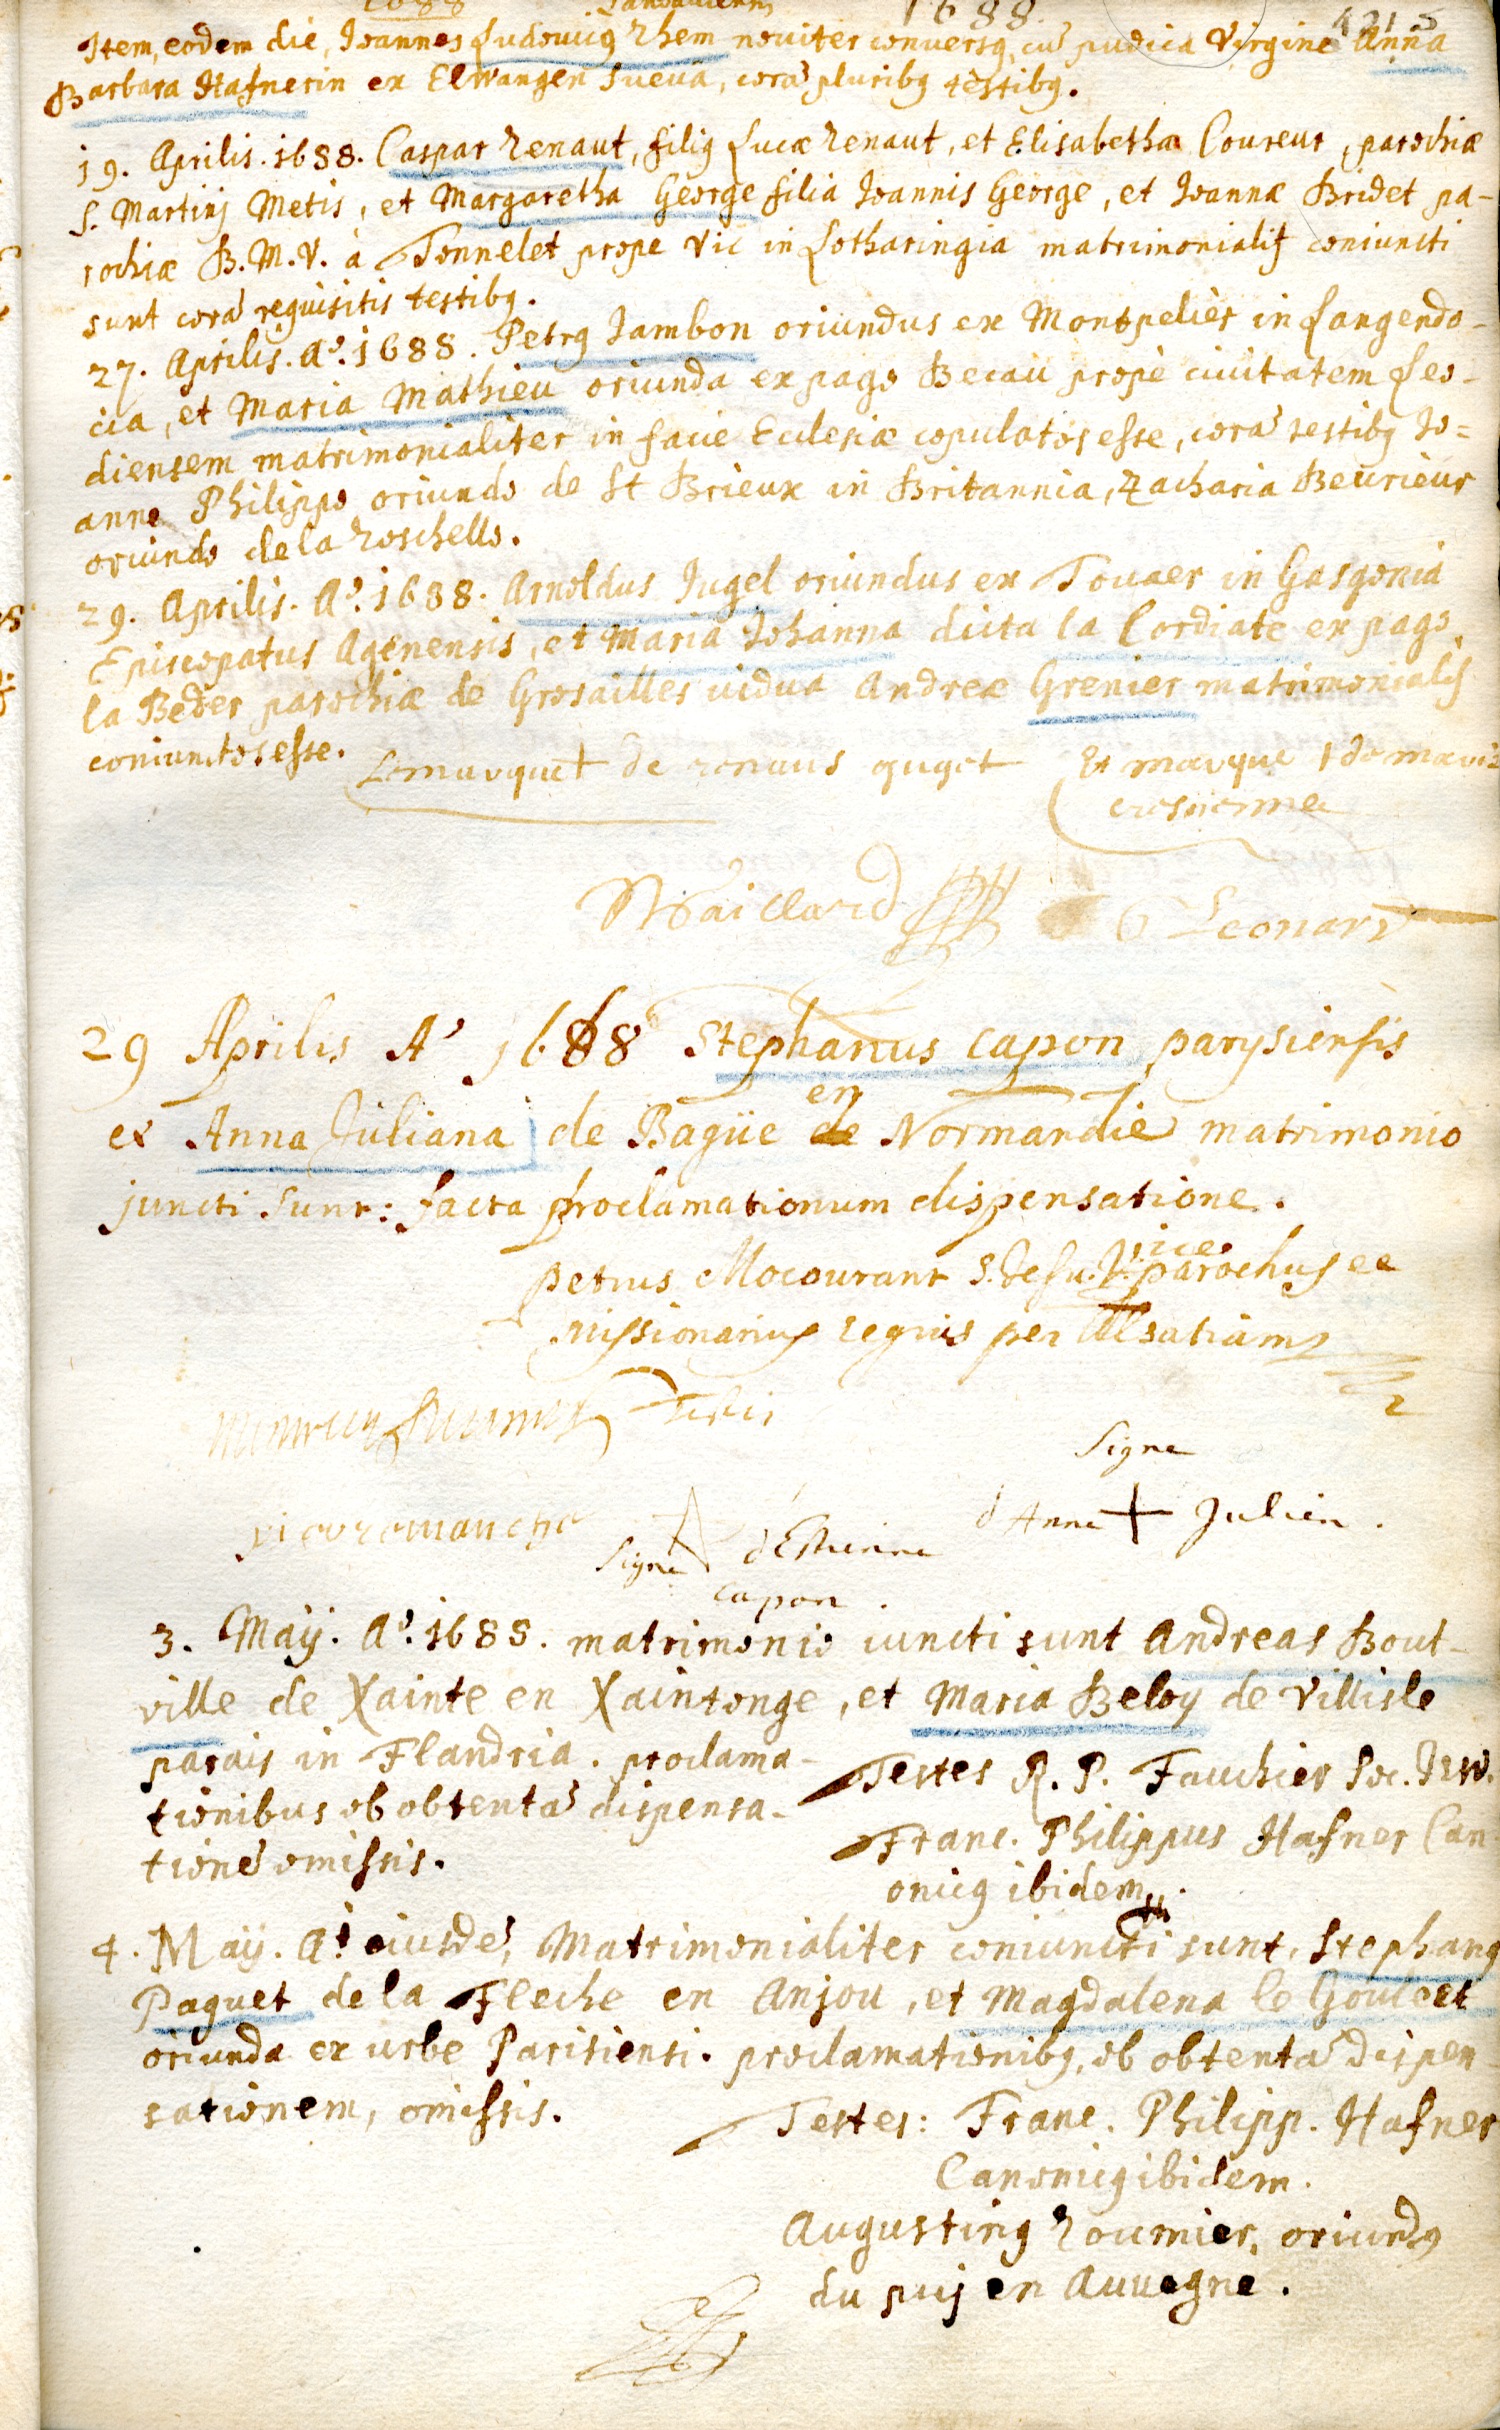 1688
1688.
4215
Item, eodem die, Joannes Ludovicus Rhem noviter conversus, cu pudica Virgine Anna
Barbara Hafnerin ex Elwangen Sueva, cora pluribus testibus.
19. Aprilis. 1688. Caspar Renaut, filius Lucæ Renaut, et Elisabetha Coureur, parochiæ
S. Martini Metis, et Margaretha George filia Joannis George, et Joannæ Bridet pa-
rochiæ B. M. V. à Tonnelet prope Vic in Lotharingia matrimonialiter coniuncti
sunt corā requisitis testibus.
27. Aprilis. Aº. 1688. Petrus Jambon oriundus ex Montpelier in Langendo-
cia, et Maria Mathieu oriunda ex pago Becau propè civitatem Leo-
diensem matrimonialiter in facie Ecclesiæ copulatos esse, corā testibus Jo=
anne Philippo oriundo de St Brieux in Britannia, Zacharia Beurieur
oriundo de la Roschelle.
29. Aprilis. Aº. 1688. Arnoldus Jugel oriundus ex Tovaer in Gasgonia
Episcopatus Agenensis, et Maria Johanna dicta la Cordiate ex pago
la Beder parochiæ de Grosailles vidua Andreæ Grenier matrimonialiter
coniunctos esse.
Lemarque + de renaus guget
Et marque + de marie
Maillard
G Leonard
29 Aprilis Aº 1688 Stephanus Capon parysiensis
et Anna Juliana de Bagüe en Normandie matrimonio
juncti sunt: facta proclamationum dispensatione.
petrus Mocourant S. Jesu. Vice parochus ee
missionarius regius per Alsatiam
Testis
Signe
d'Anne + Julien.
Signe d'Estienne
Capon.
3. Maÿ. Aº. 1688. matrimonio iuncti sunt Andreas Bout-
ville de Xainte en Xaintonge, et Maria Beloy de Villisle
parais in Flandria. proclama-
tionibus ob obtentā dispensa-
tionē omissis.
Testes R. P. Fauchier Soc. Jesu.
Franc. Philippus Hafner Can
onicus ibidem.
4. Maÿ. Aº. eiusdē, Matrimonialiter coniuncti sunt, Stephanus
Paquet de la Fleche en Anjou, et Magdalena le Goulet
oriunda ex urbe Parisiensi. proclamationibus, ob obtentā dispen-
sationem, omissis.
Testes: Franc. Philipp. Hafner
Canonicus ibidem.
Augustinus Roumier, oriundus
du puij en Auvegne.